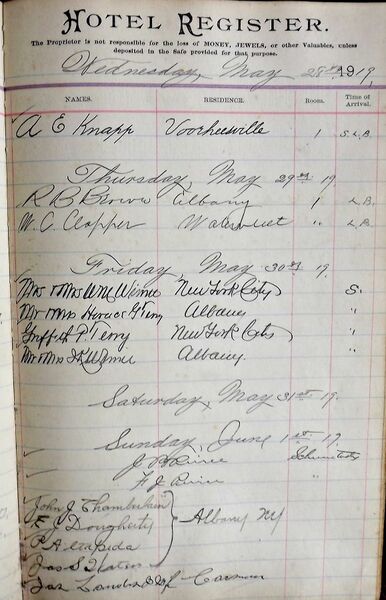 HOTEL REGISTER.
The Proprietor is not responsible for the loss of MONEY, JEWELS, or other Valuables, unless
deposited in the Safe provided for that purpose.
Wednesday, May 28th 1919,
NAMES. RESIDENCE. Room. Time of Arrival.
A E Knapp Voorheesville 1 S.L.B.
Thursday, May 29th 19
R B Brown Albany 1 L.B.
W. C. Clapper Watervliet " L.B.
Friday, May 30th 19.
Mr & Mrs Wm Winne New York City S.
Mr & Mrs Horace G Terry Albany "
Griffith P. Terry New York City "
Mr & Mrs Winne Albany. "
Saturday, May 31st 19.
Sunday, June 1st 19.
J Schenectady
F J "
John J Chamberlain
E J Dougherty Albany NY
P A
Jas S
Jas